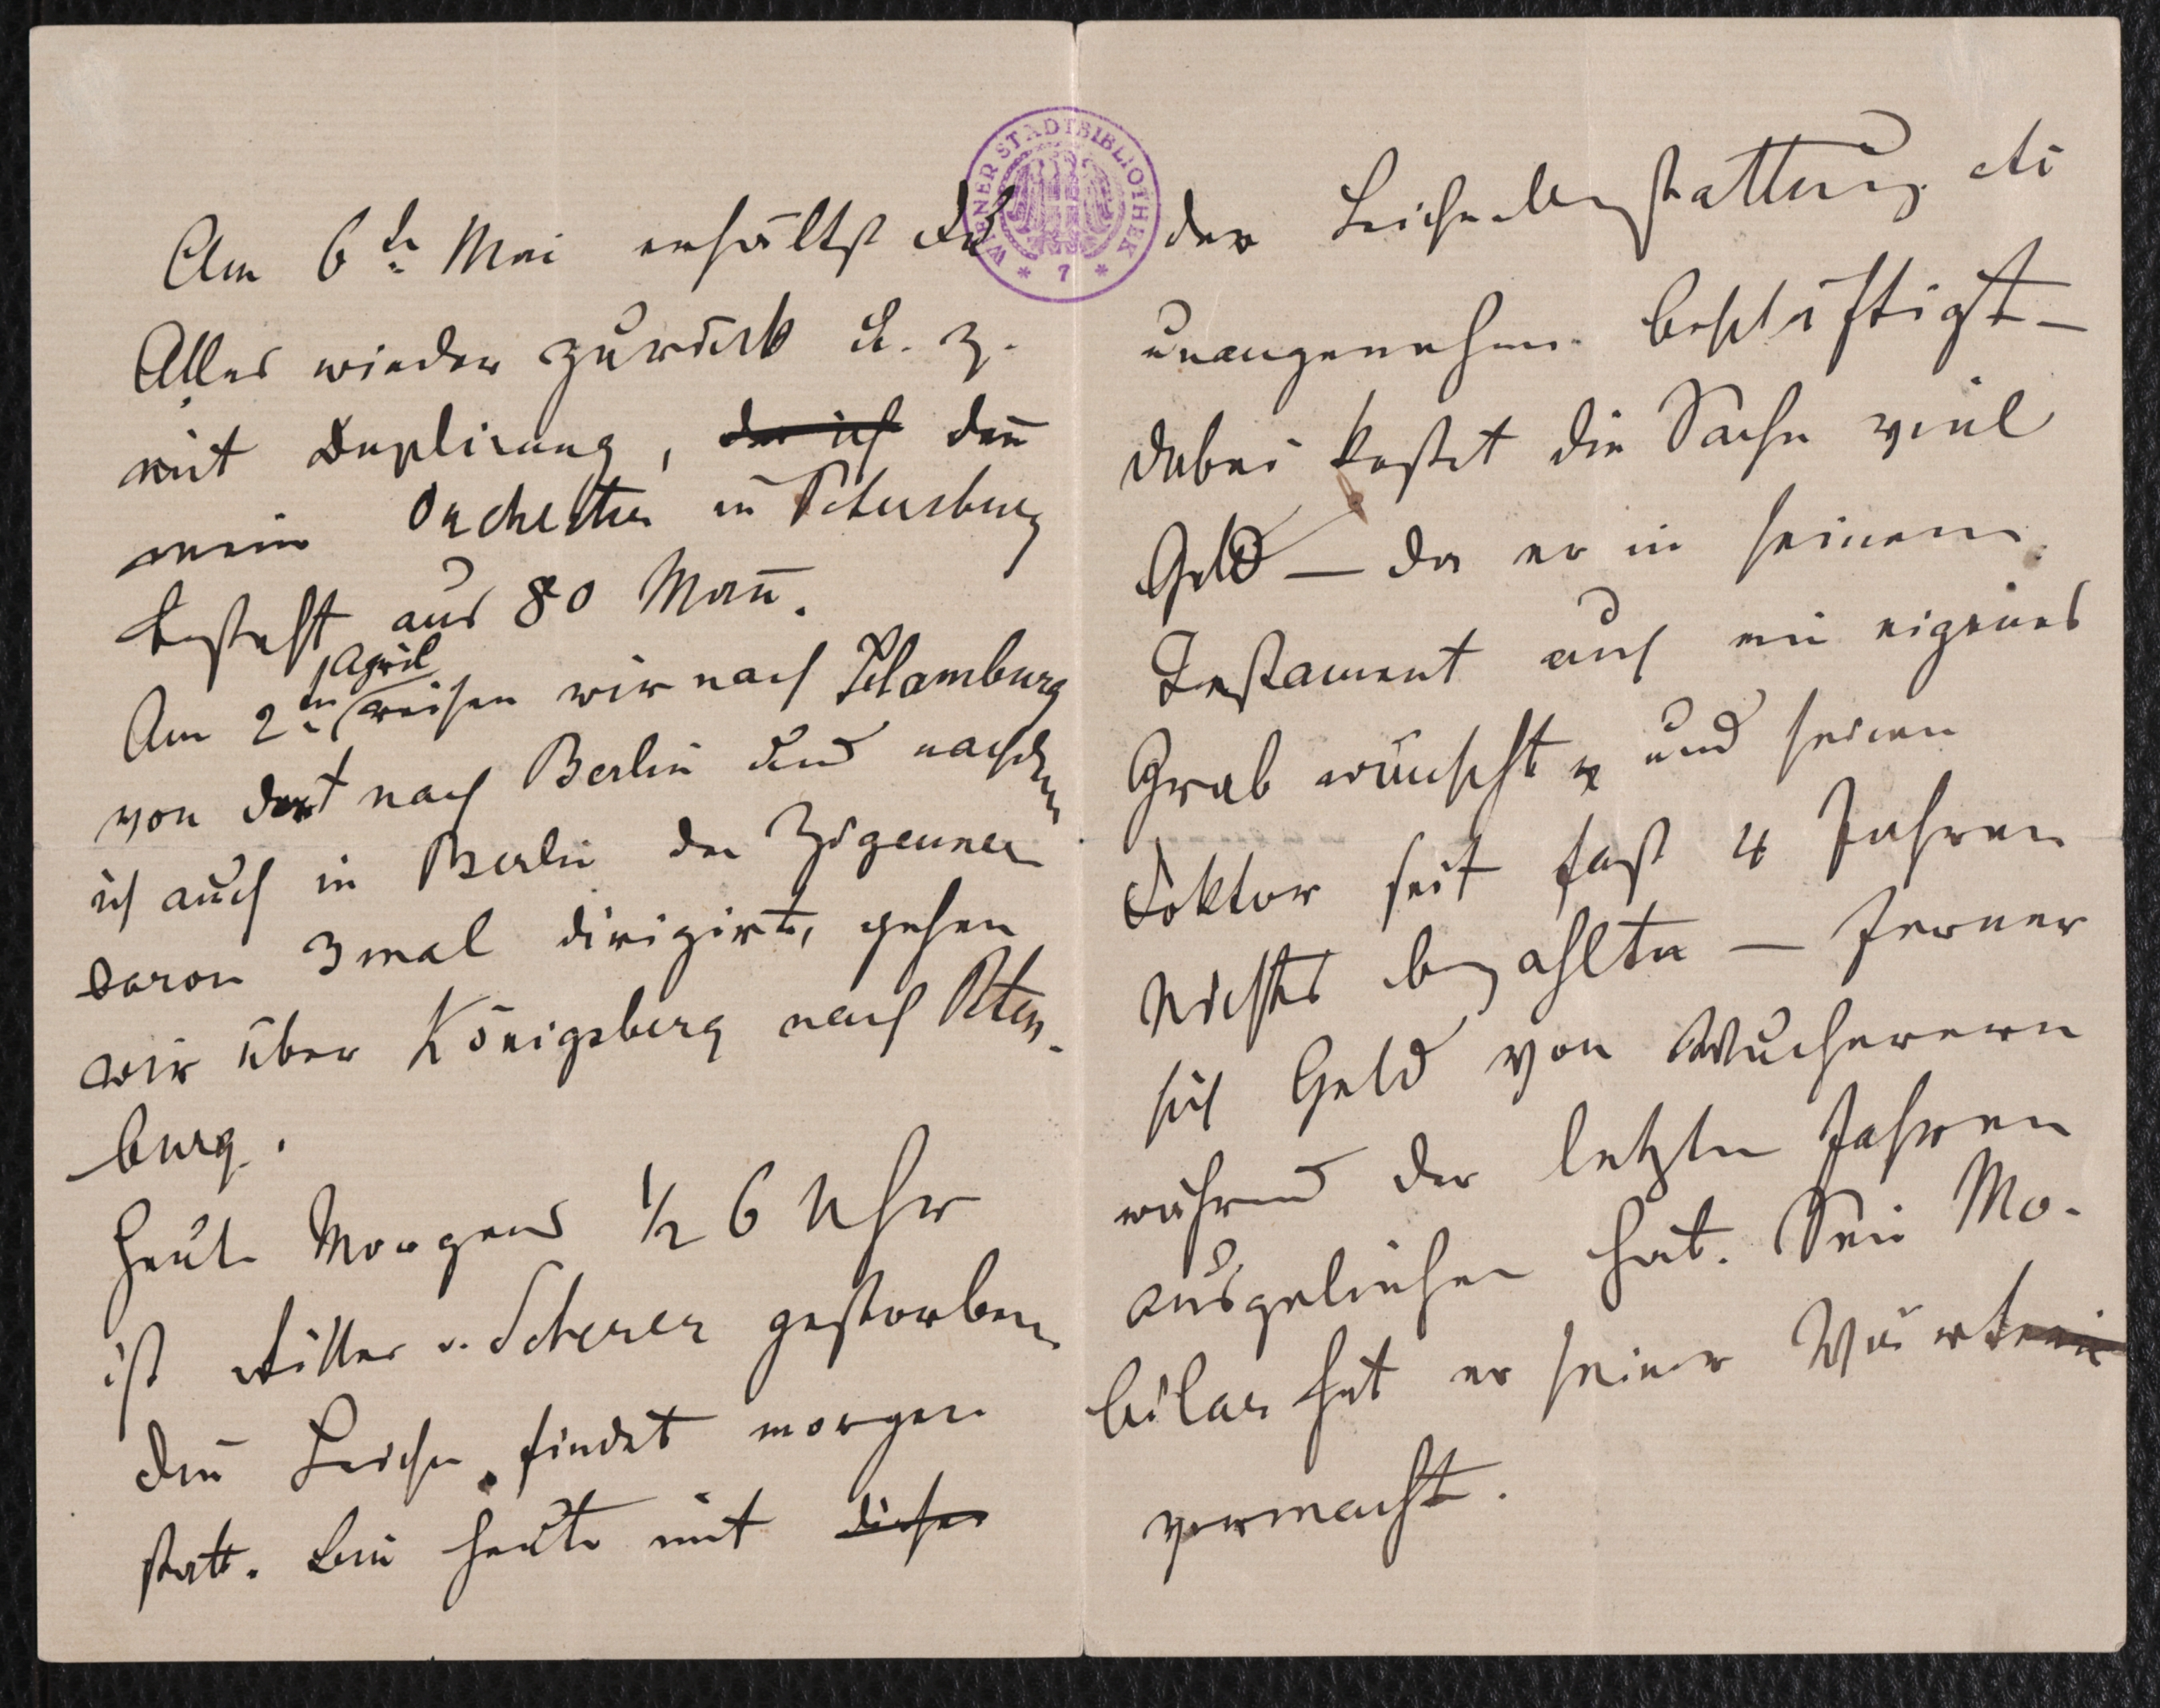 Am 6ten Mai erhältst du
Alles wieder zurück u. z.
mit Duplirung, der ich den̄
mein Orchester in Petersburg
besteht aus 80 Man̄.
Am 2ten April reisen wir nach Hamburg
von dort nach Berlin und nachdem
ich auch in Berlin den Zigeuner
baron 3mal dirigirt, gehen
wir über Königsberg nach Peters-
burg.
Heute Morgens ½ 6 Uhr
ist Ritter v. Scherer gestorben
Die Leiche findet morgen
statt. Bin heute mit dieser
der Leichenbestattung etc
unangenehm beschäftigt –
dabei kostet die Sache viel
Geld – da er in seinem
Testament auch ein eigenes
Grab wünscht, und seinen
Doktor seit fast 4 Jahren
Nichts bezahlte – ferner
sich Geld von Wucherern
während der letzten Jahren
ausgeliehen hat. Sein Mo-
bilar hat er seiner Wärterin
vermacht.
WIENER STADTBIBLIOTHEK
* 7 *